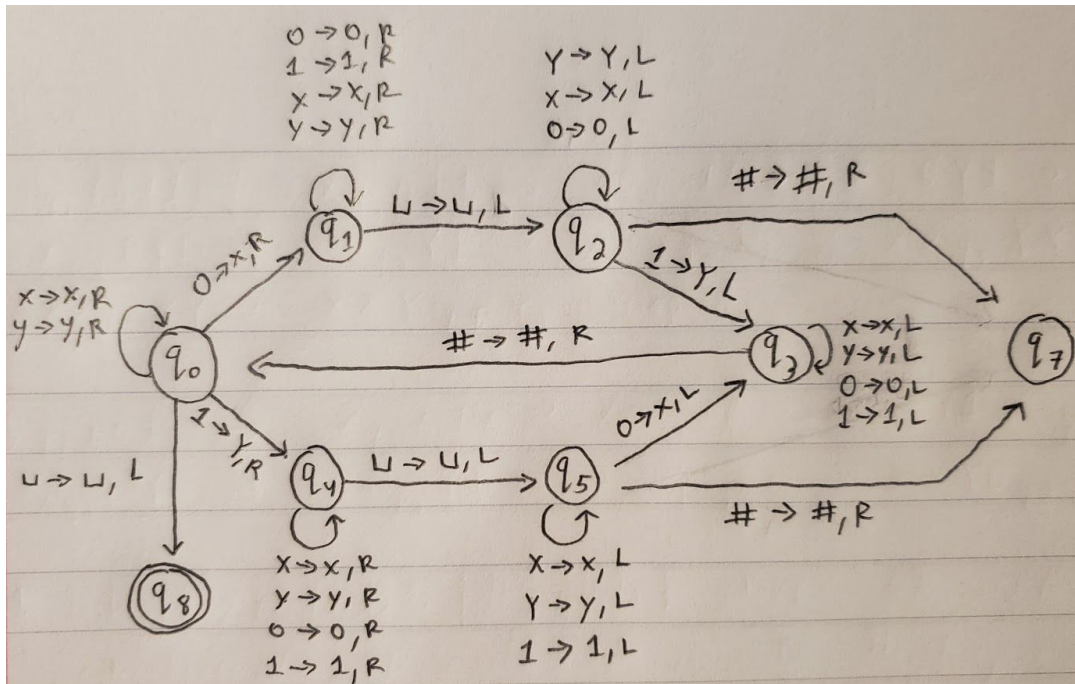 0→0,R
1→1,R
X→X,R
Y→Y,R
Y→Y,L
X→X,L
0→0,L
#→#,R
q1
⊔→⊔,L
q2
0→X,R
1→Y,L
X→X,R
Y→Y,R
q0
#→#,R
q3
X→X,L
Y→Y,L
0→0,L
1→1,L
q7
1→Y,R
0→X,L
⊔→⊔,L
q4
⊔→⊔,L
q5
#→#,R
q8
X→X,R
Y→Y,R
0→0,R
1→1,R
X→X,L
Y→Y,L
1→1,L